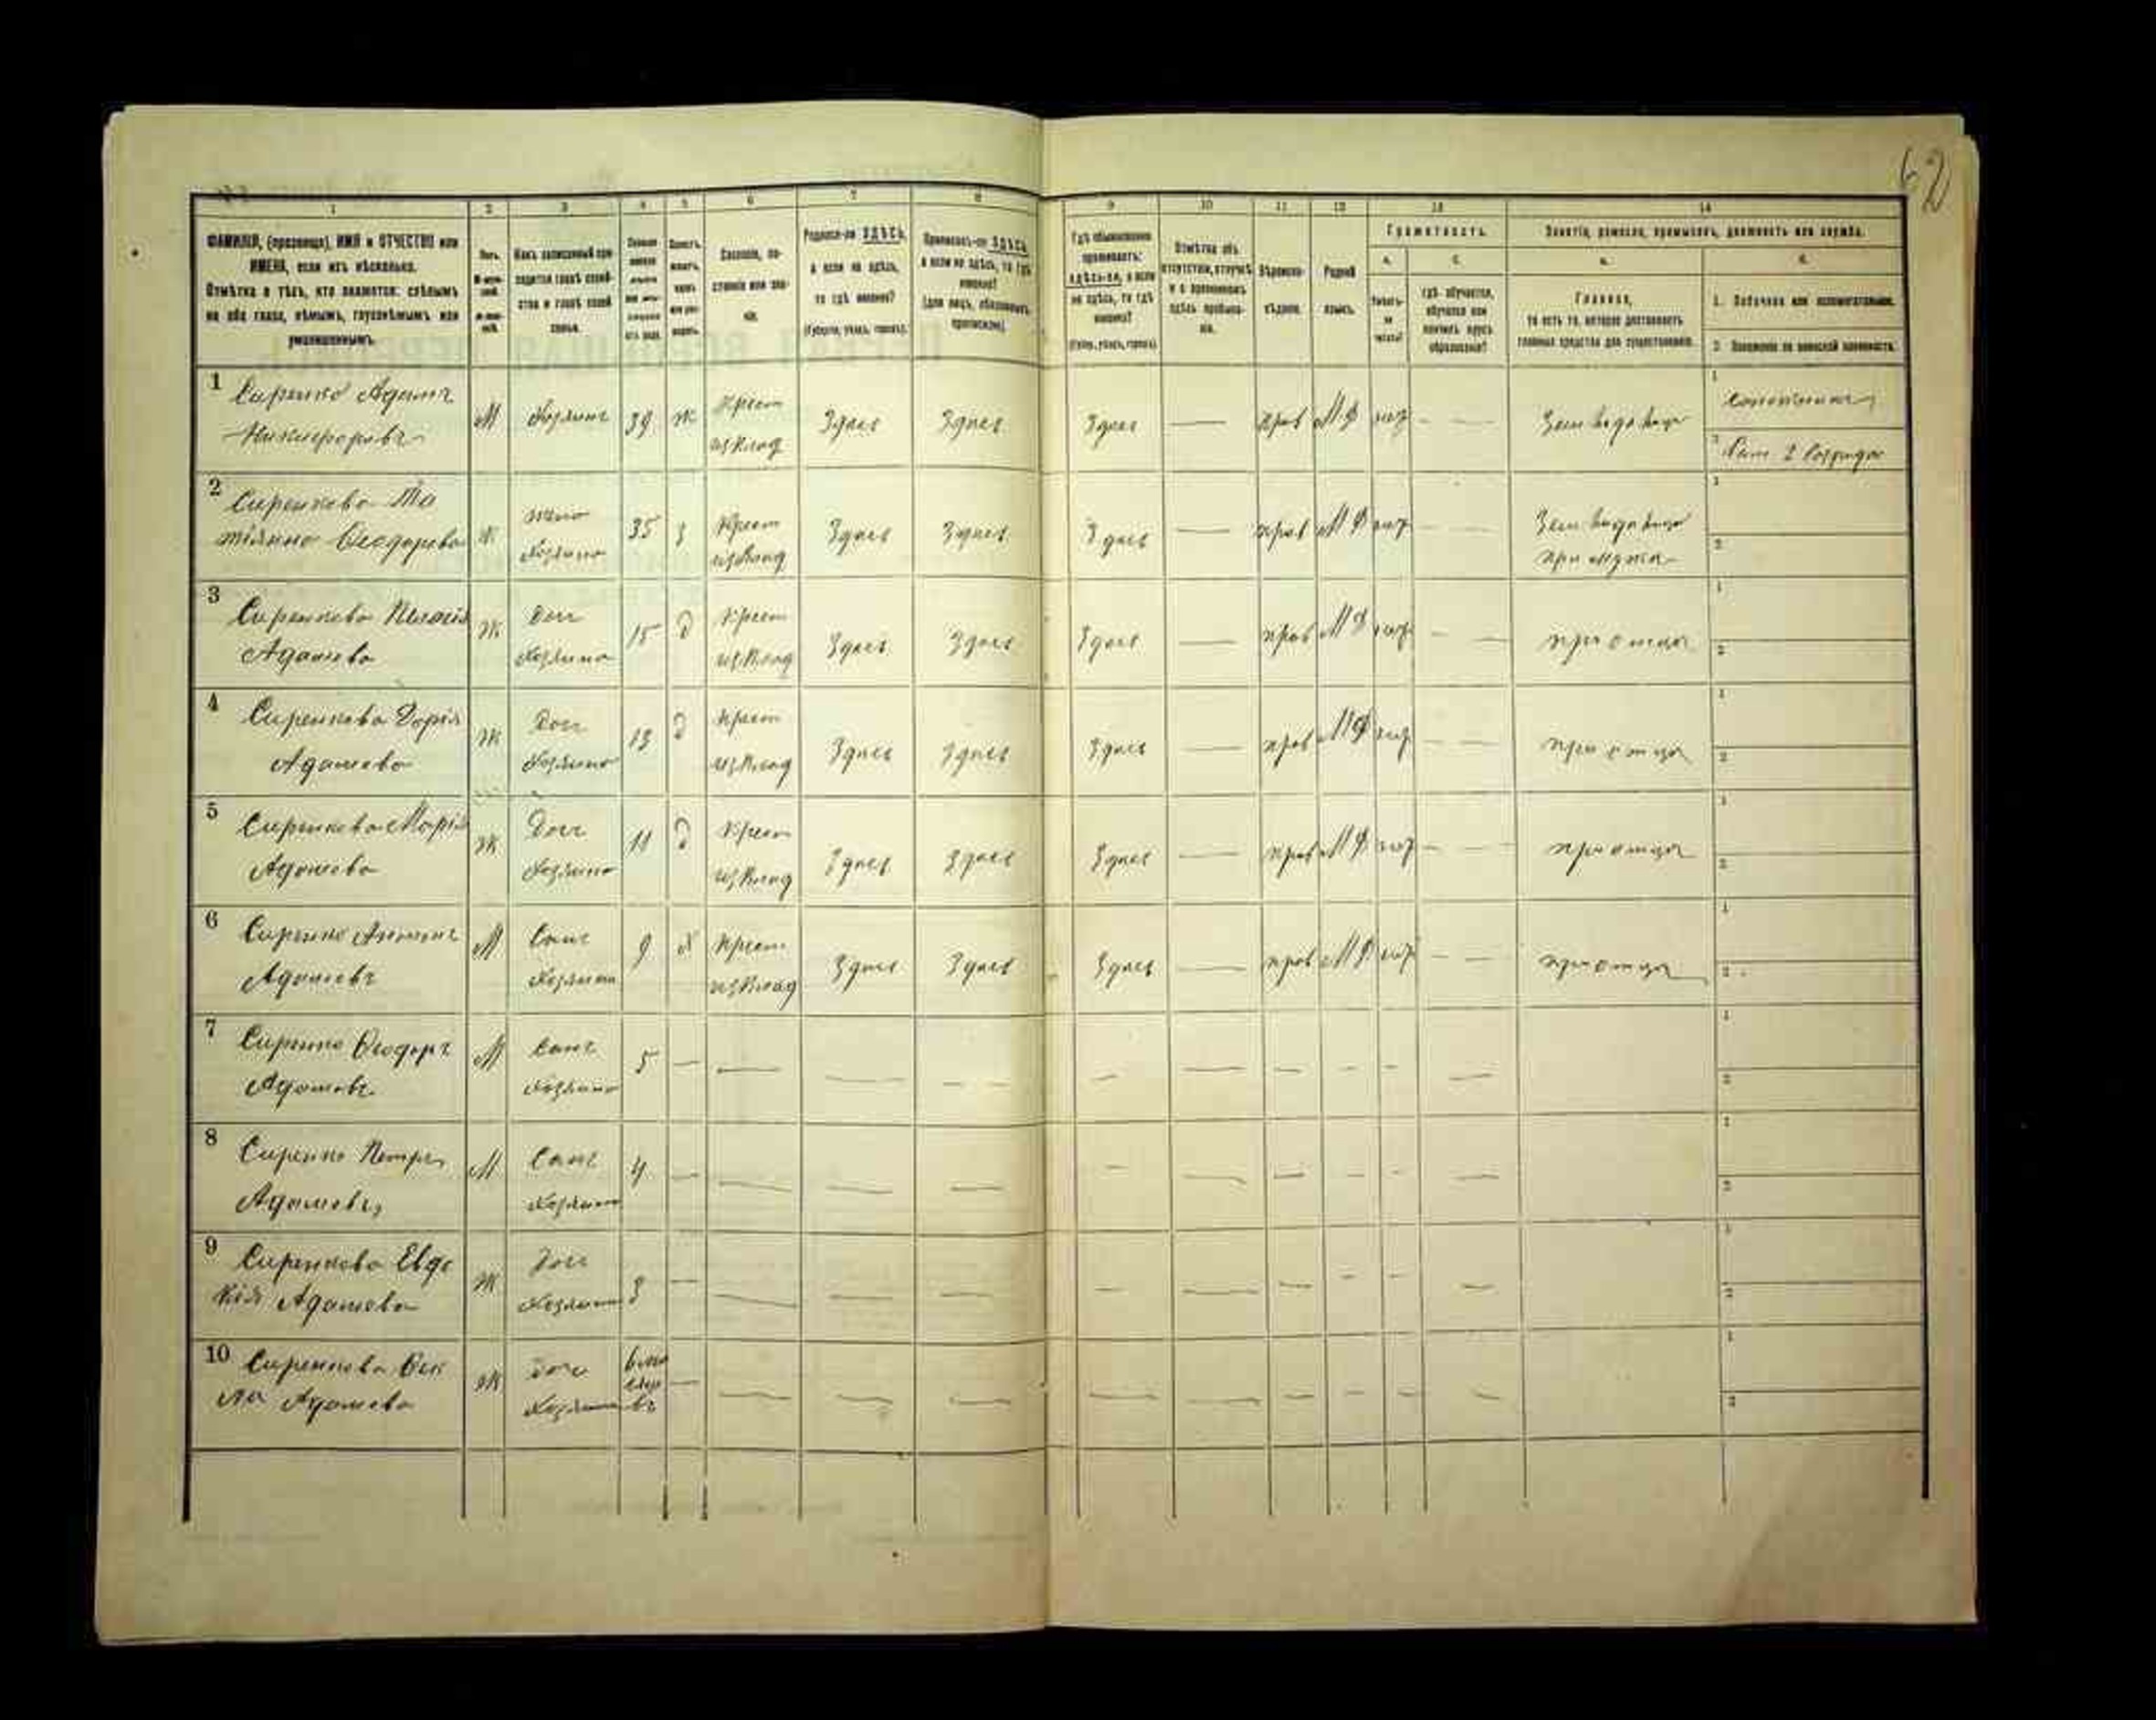 62
1 2 3 4 5 6 7 8 9 10 11 12 13 14
ФАМИЛІЯ, (прозвище), ИМЯ и ОТЧЕСТВО или
ИМЕНА, если ихъ нѣсколько.
Отмѣтка о тѣхъ, кто окажется: слѣпымъ
на оба глаза, нѣмымъ, глухонѣмымъ или
умалишеннымъ.
Полъ.
Какъ записанный при-
ходится главѣ хозяй-
ства и главѣ своей
семьи.
Сословіе, со-
стояніе или зва-
ніе.
Родился-ли ЗДѢСЬ,
а если не здѣсь,
то гдѣ именно?
(Губернія, уѣздъ, городъ).
Приписанъ-ли ЗДѢСЬ,
а если не здѣсь, то гдѣ
именно?
(для лицъ, обязанныхъ
припискою).
Гдѣ обыкновенно
проживаетъ:
здѣсь-ли, а если
не здѣсь, то гдѣ
именно?
(Губер., уѣздъ, городъ).
Отмѣтка объ
отсутствіи, отлучкѣ
и о временномъ
здѣсь пребыва-
ніи.
Вѣроиспо-
вѣданіе.
Родной
языкъ.
Грамотность.
а.
Умѣетъ-
ли
читать?
б.
гдѣ обучается,
обучался или
кончилъ курсъ
образованія?
Занятіе, ремесло, промыселъ, должность или служба.
а.
Главное,
то есть то, которое доставляетъ
главныя средства для существованія.
б.
1. Побочное или вспомогательное.
2. Положеніе по воинской повинности.
1 Сиренко Адамъ
Никифоровъ
М Хозяинъ 39 ж Крест
из влад
Здесь Здесь Здесь — прав М Р — —
2 Сиренкова Та
тіянна Ѳеодорова
Ж жена
Хозяина
35 з Крест
из влад
Здесь Здесь Здесь — прав М Р
при мужа
3 Сиренкова Пелагія
Адамова
Ж Доч
Хозяина
15 д Крест
из влад
Здесь Здесь Здесь — прав М Р — — при отца
4 Сиренкова Дарія
Адамова
Ж Доч
Хозяина
13 д Крест
из влад
Здесь Здесь Здесь — прав М Р — — при отца
5 Сиренкова Марія
Адамова
Ж Доч
Хозяина
11 д Крест
из влад
Здесь Здесь Здесь — прав М Р — — при отца
6 Сиренко Антонъ
Адамовъ
М Сынъ
Хозяина
9 х Крест
из влад
Здесь Здесь Здесь — прав М Р — — при отца
7 Сиренко Ѳеодоръ
Адамовъ
М Сынъ
Хозяина
5 — — — — — — — — — —
8 Сиренко Петръ
Адамовъ
М Сынъ
Хозяина
4 — — — — — — — — — —
9 Сиренкова Евдо
кія Адамова
Ж Доч
Хозяина
3 — — — — — — — — — —
10 Сиренкова Ѳек
ла Адамова
Ж Доч
Хозяина
— — — — — — — — — —